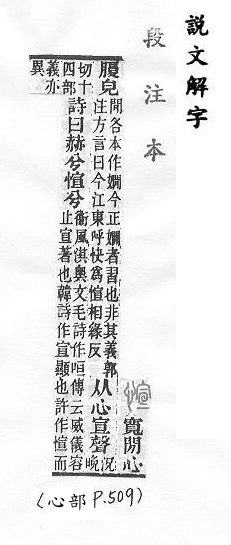 説文解字
段注本
愃 寬閒心
腹皃閒各本作嫺今正嫺者習也非其義郭
注方言曰今江東呼快爲愃相緣反从心宣聲況晚
切十
四部詩曰赫兮愃兮衞風淇奧文毛詩作咺傳云威儀容
止宣著也韓詩作宣顯也許作愃而
義亦
異
(心部 P.509)